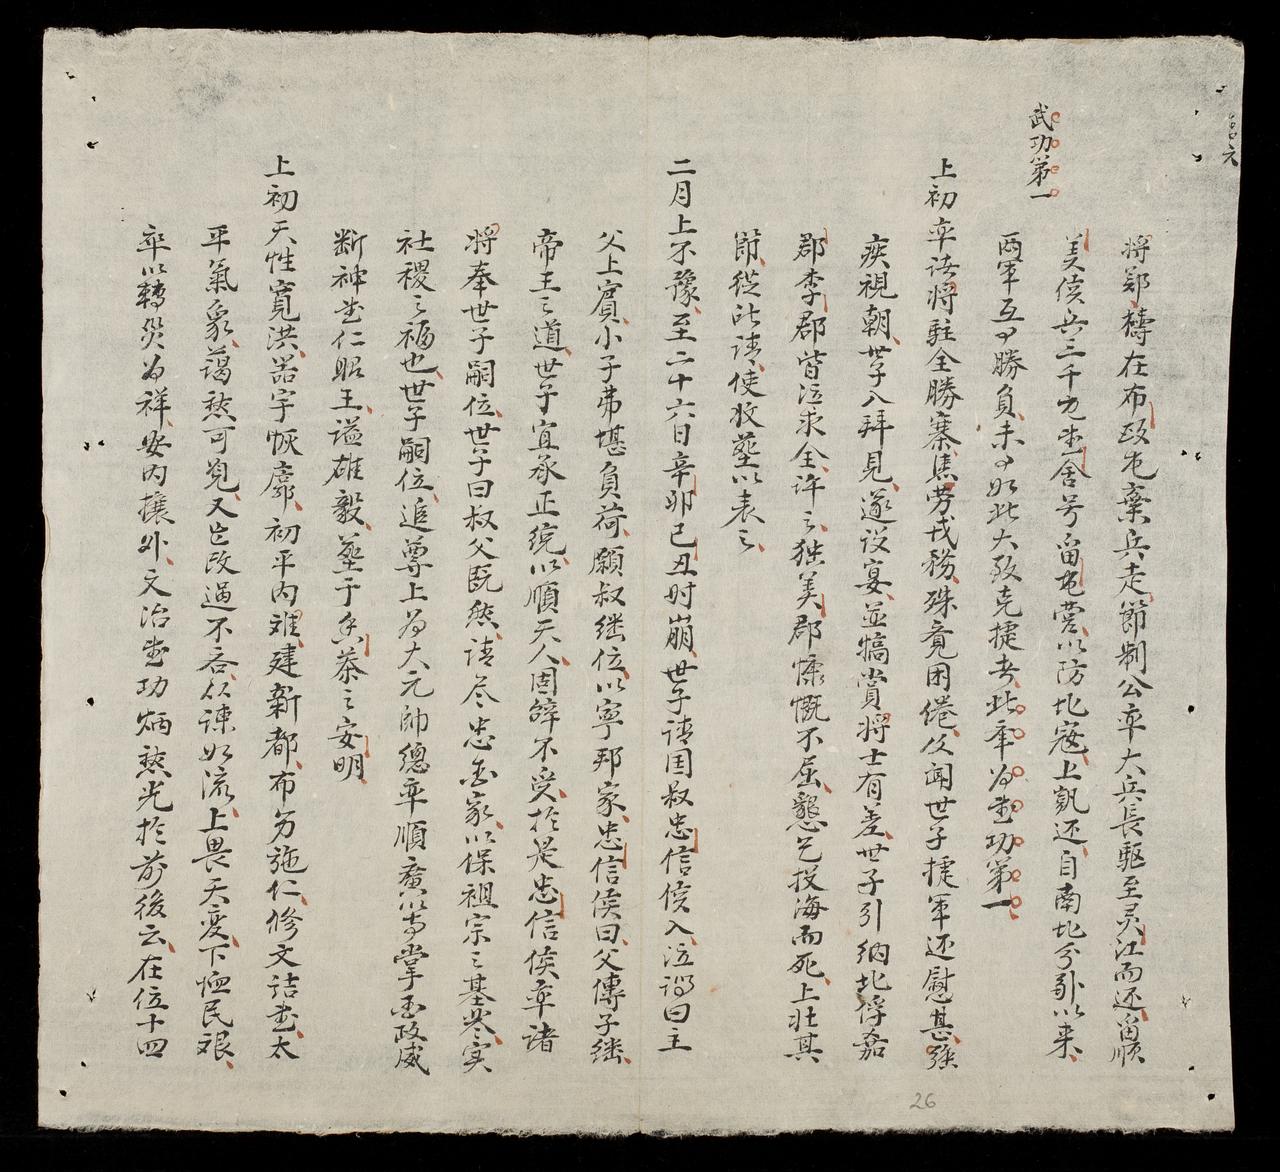 武功第一
將鄭檮在布政屯棄兵走節制公率大兵長驅至灵江而还留順
義侯兵三千屯武舍号留屯营以防北寇上凱还自南北分列以来
兩軍互有勝負未有如此大致克捷者此年为武功第一
上初率諸將駐全勝寨焦劳戎務殊竟困倦及闻世子捷軍还慰甚強
疾視朝世子入拜見遂设宴並犒賞將士有差世子引納北俘嘉
郡李郡皆泣求全许之独美郡慷慨不屈懇乞投海而死上壮其
節從此請使收葬以表之
二月上不豫至二十六日辛卯己丑时崩世子請国叔忠信侯入泣謂曰主
父上賓小子弗堪負荷願叔継位以寧邦家忠信侯曰父傳子継
帝王之道世子宜承正统以順天人固辞不受於是忠信侯率诸
將奉世子嗣位世子曰叔父既然請尽忠国家以保祖宗之基業实
社稷之福也世子嗣位追尊上为大元帥總率順廣等掌国政威
断神武仁昭王谥雄毅葬于香茶之安明
上初天性寬洪器宇恢廓初平内难建新都布分施仁修文诘武太
平氣象藹然可見又能改過不吝从諫如流上畏天变下恤民艰
卒以轉災为祥安内攘外文治武功炳然光於前後云在位十四
26